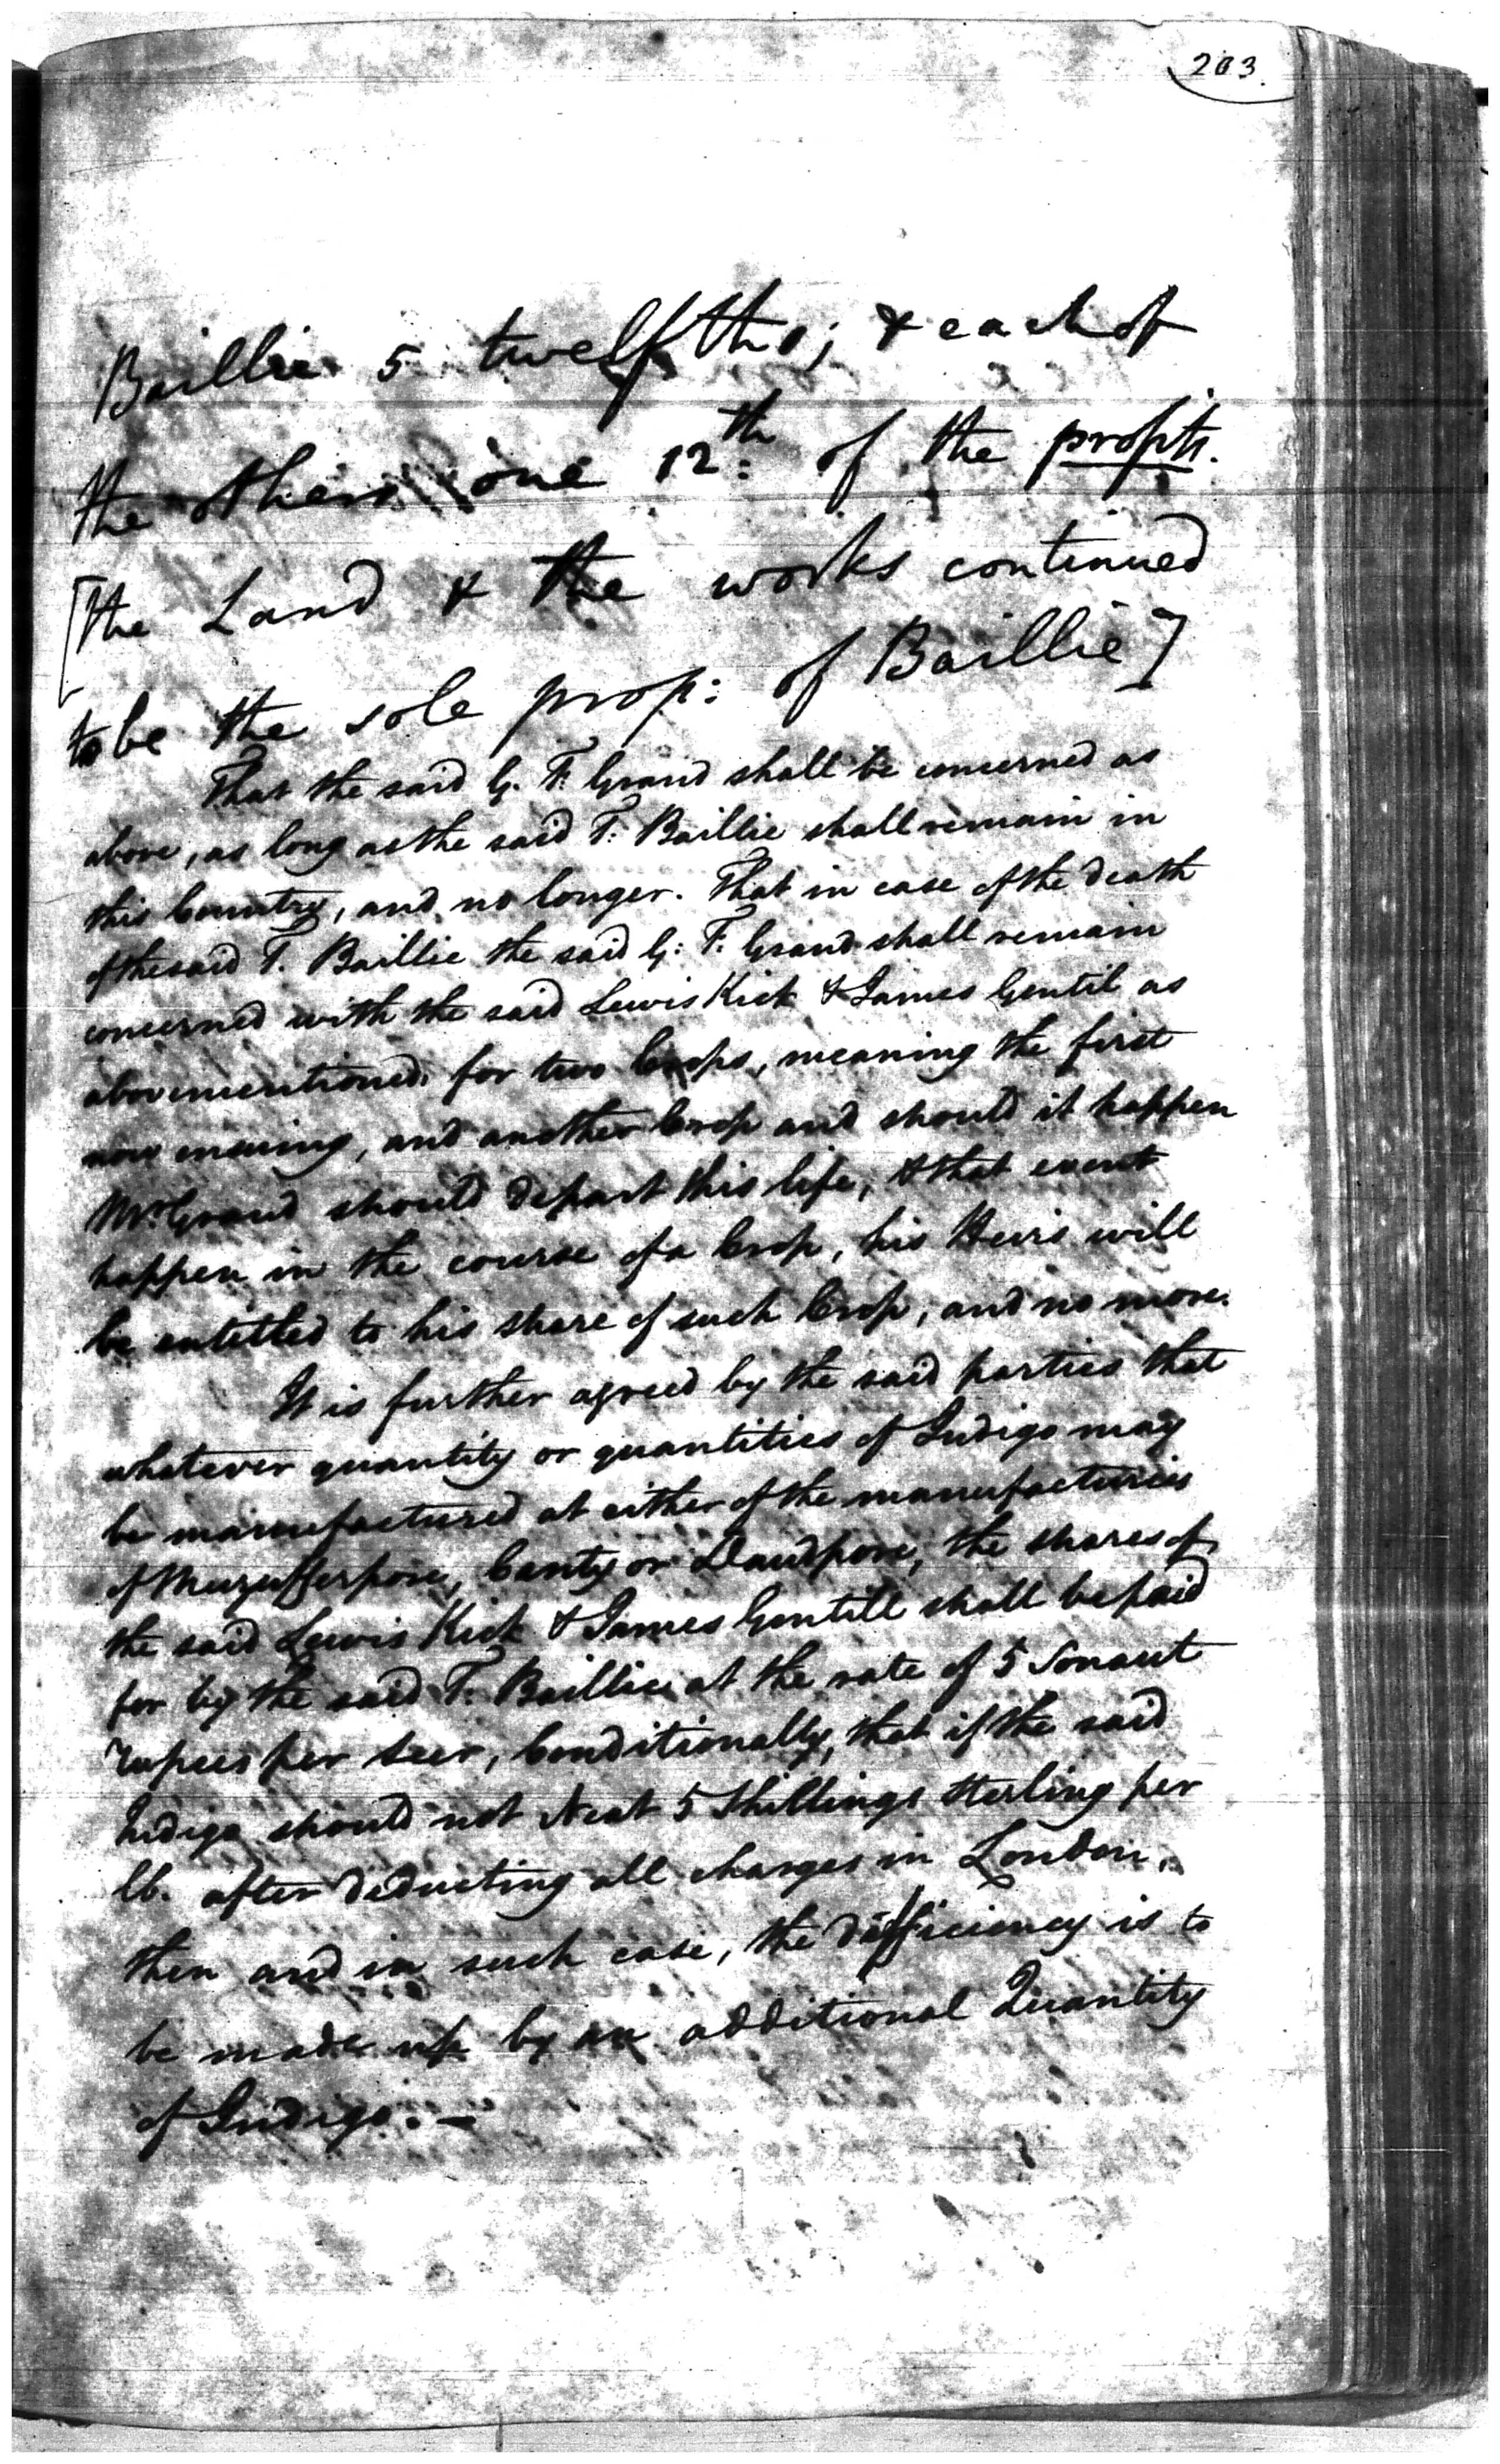 203.
Baillie 5 twelfths; & each of
the others one 12th: of the profits.
[the Land & the works continued
to be the sole prop: of Baillie]
That the said G. F. Grand shall be concerned as
above, as long as the said T: Baillie shall remain in
this Country, and no longer. That in case of the death
of the said T. Baillie the said G: F: Grand shall remain
concerned with the said Lewis Kick & James Gentil as
abovementioned for two Crops, meaning the first
now ensuing, and another Crop and should it happen
Mr. Grand should depart this life, & that event
happen in the course of a Crop, his Heirs will
be entitled to his share of such Crop, and no more.
It is further agreed by the said parties that
whatever quantity or quantities of Indigo may
be manufactured at either of the manufacturies
of Muzufferpore, Canty or Daudpore, the shares of
the said Lewis Kick & James Gentill shall be paid
for by the said T. Baillie at the rate of 5 Sonaut
rupees per seer, Conditionally, that if the said
Indigo should not Neat 5 Shillings Sterling per
lb. after deducting all charges in London,
then and in such case, the difficiency is to
be made up by an additional Quantity
of Indigo. —